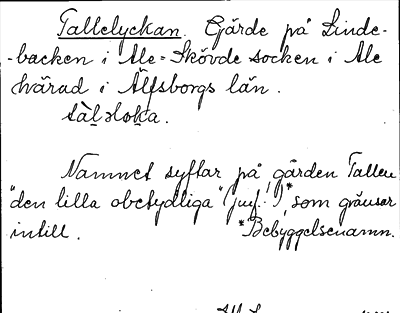 Tallelyckan. Gärde på Linde-
-backen i Ale-Skövde socken i Ale
härad i Älfsborgs län.
Namnet syftar på gården Tallen
"den lilla obetydliga" (juf. !)* som gränsar
intill. *Bebyggelsenamn.